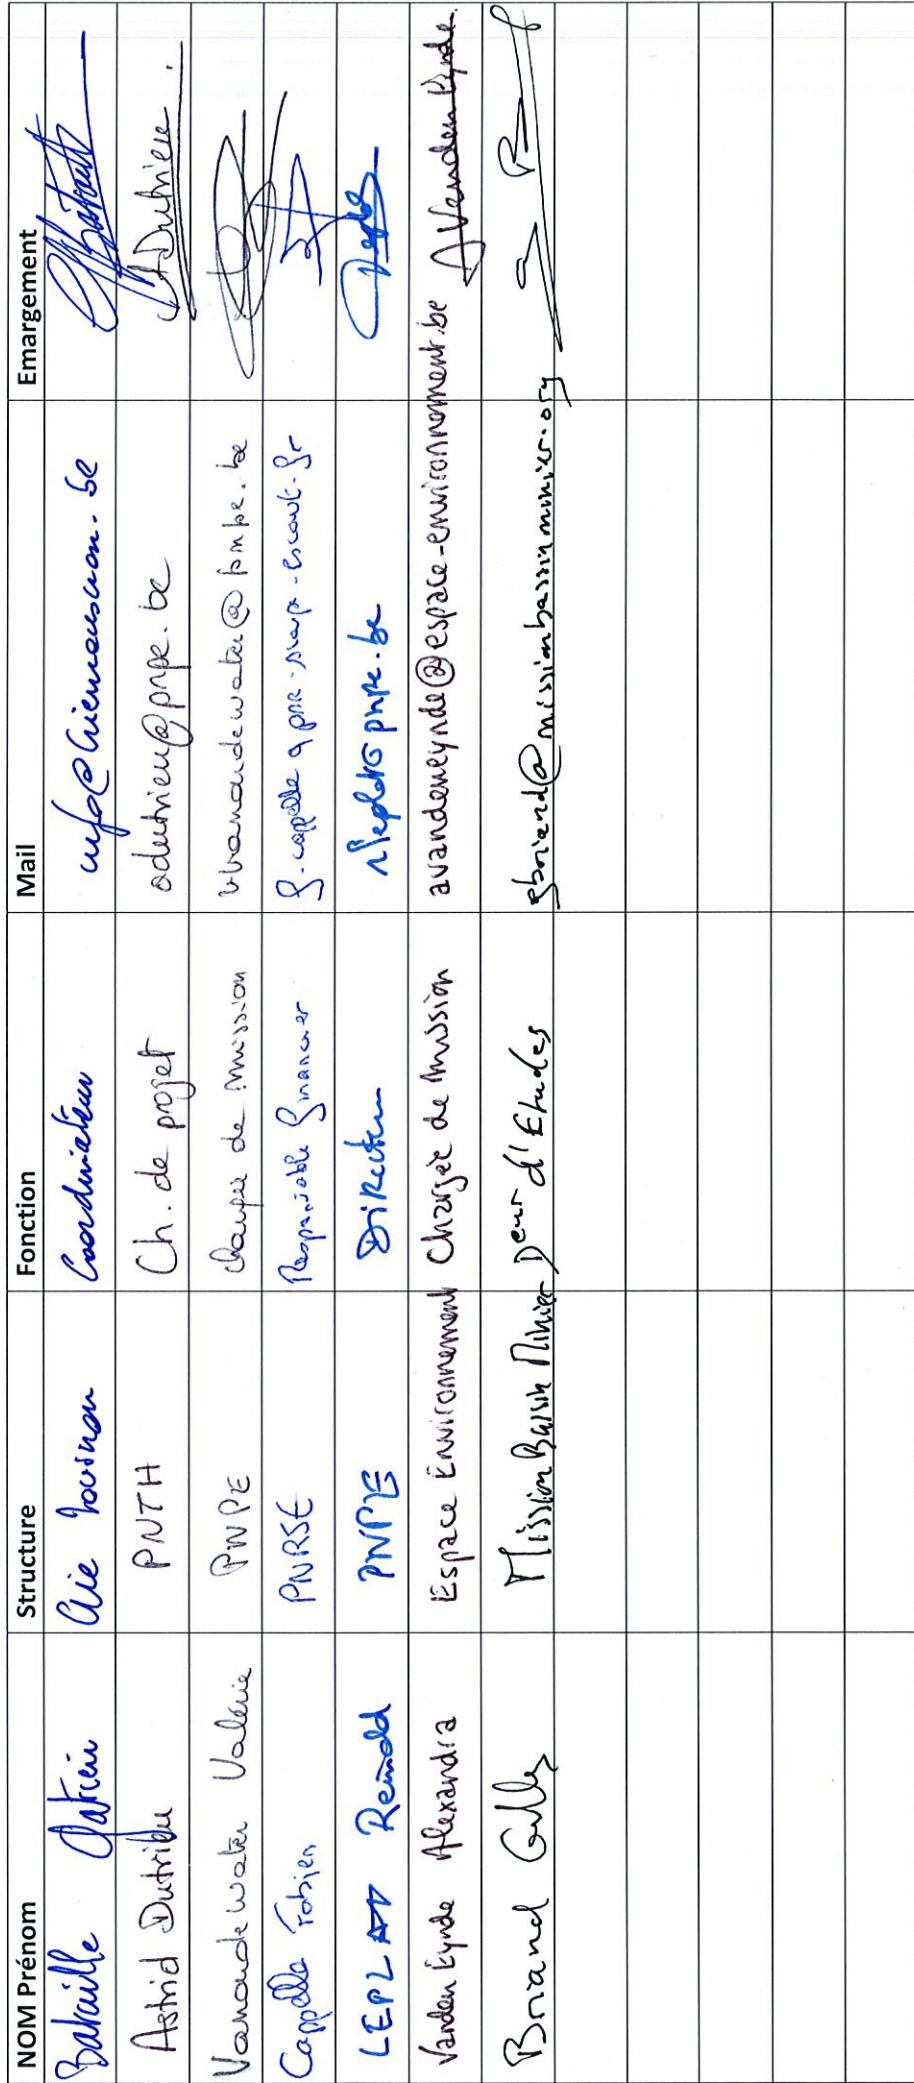 NOM Prénom Structure Fonction Mail Emargement
Bataille Coordinateur
Astrid Dutrieu PNTH Ch. de projet adutrieu@pnpe.be ADutrieu
Vanandewater Valérie PNPE chargée de mission
Cappelle Fabien PNRSE Responsable financier
LEPLAT Reinold PNPE Directeur
Vanden Eynde Alexandra Espace Environnement Chargée de mission avandeneynde@espace-environnement.be AVanden Eynde
Briand Gilles Mission Bassin Minier Deur d'Etudes gbriand@missionbassinminier.org